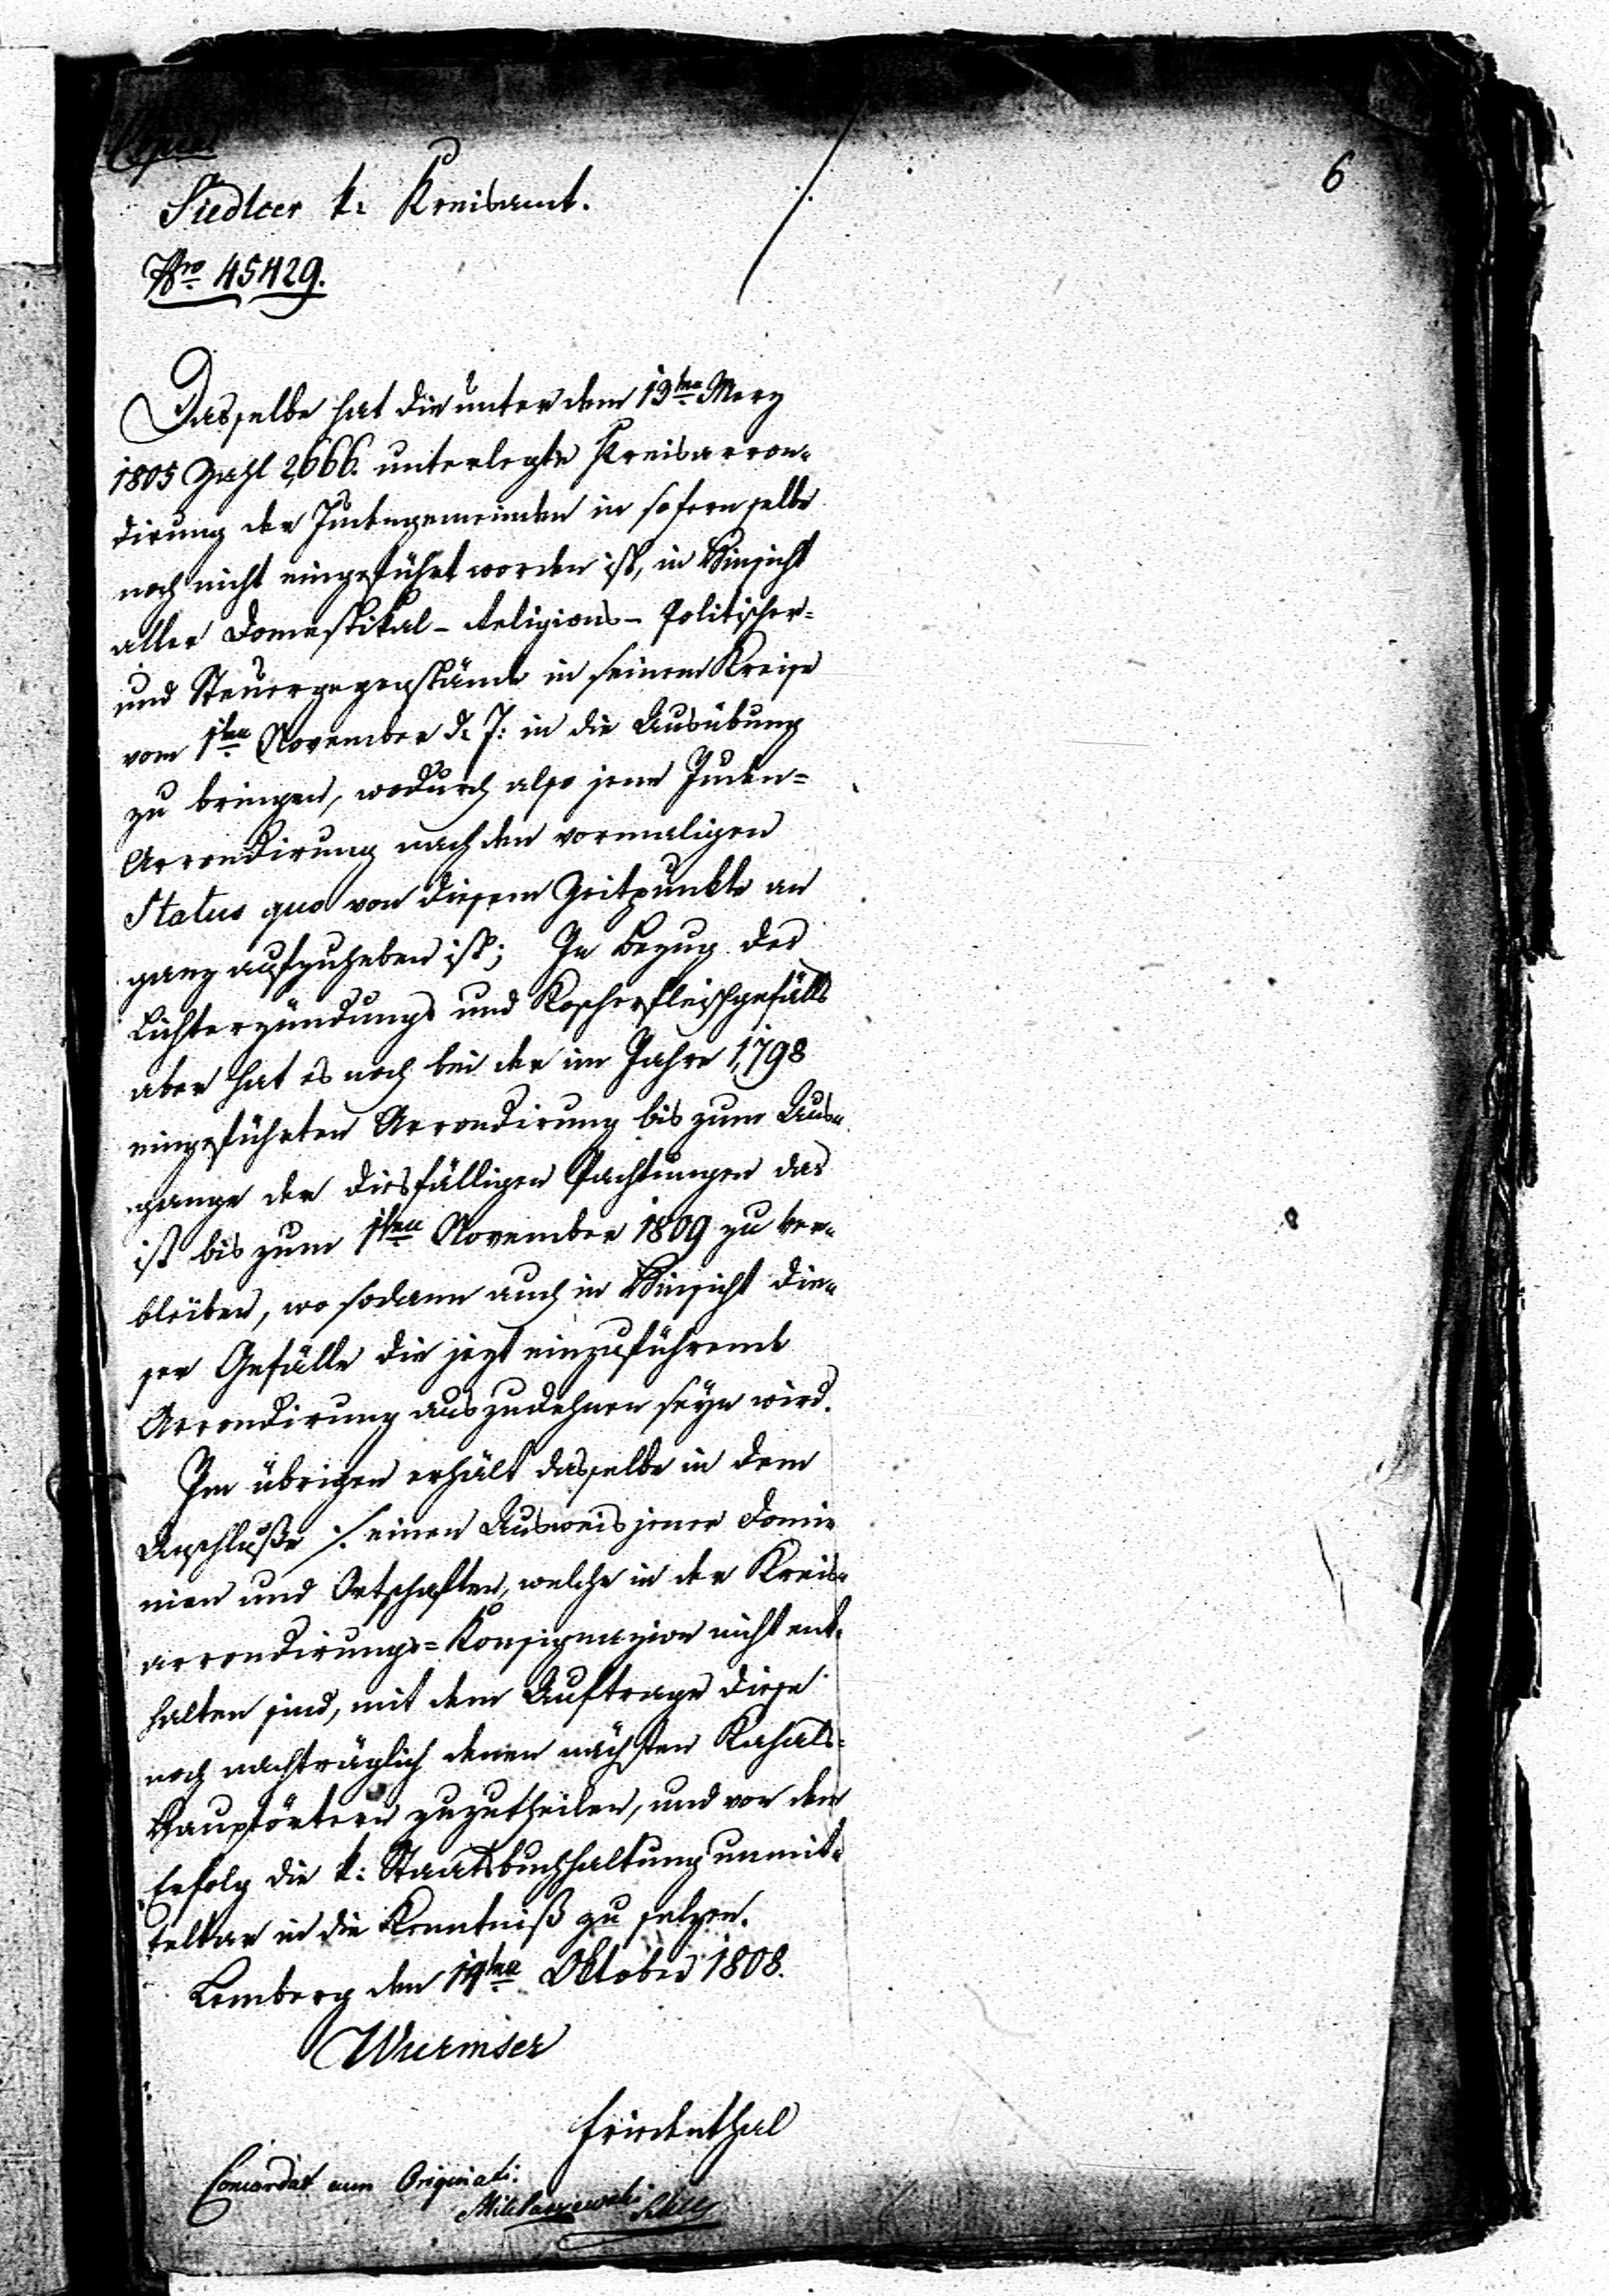 Copia
6
Siedlcer k: Kreisamt.
Nro 45429.
Dasselbe hat die unter dem 19ten Merz
1805 Zahl 2,666. unterlegte Kreisarron-
dirung der Judengemeinden in sofern selbe
noch nicht eingeführt worden ist, in Hinsicht
aller Domestikal- Religions- Politischer-
und Steuergegenstände in seinem Kreise
vom 1ten November d. J: in die Ausübung
zu bringen, wodurch also jene Juden-
Arrondirung nach dem vormaligen
Status quo von diesem Zeitpunkte an
ganz aufzuheben ist; In Bezug des
Lichterzündungs und Koscherfleischgefälls
aber hat es noch bei der im Jahre 1,798
eingeführten Arrondirung bis zum Aus-
gange der diesfälligen Pachtungen das
ist bis zum 1ten November 1809 zu ver-
bleiben, wo sodann auch in Hinsicht die-
ser Gefälle die jezt einzuführende
Arrondirung auszudehnen seyn wird.
Im übrigen erhält dasselbe in dem
Anschluße ·/. einen Ausweis jener Domi-
nien und Ortschaften, welche in der Kreis-
arrondirungs-Konsignazion nicht ent-
halten sind, mit dem Auftrage diese
noch nachträglich denen nächsten Kahals-
Hauptörtern zuzutheilen, und von dem
Erfolg die k: Staatsbuchhaltung unmit-
telbar in die Kenntniß zu setzen.
Lemberg den 14ten Oktober 1808.
Wurmser
Friedenthal
Concordat cum Originali.